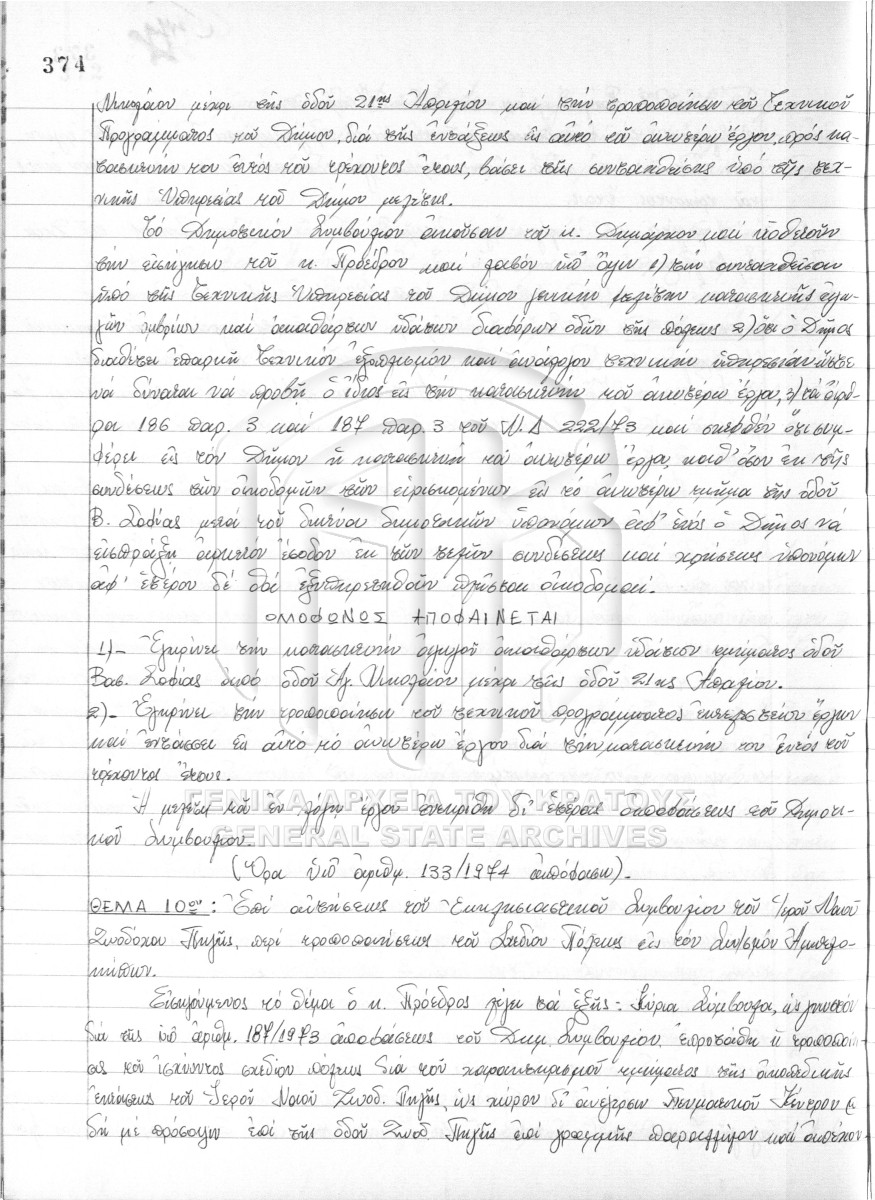 374
Νικολάου μέχρι τῆς ὁδοῦ 21ης Ἀπριλίου καί τήν τροποποίησιν τοῦ Τεχνικοῦ
Προγράμματος τοῦ Δήμου, διά τῆς ἐντάξεως εἰς αὐτό τοῦ ἀνωτέρω ἔργου, πρός κα-
τασκευήν του ἐντός τοῦ τρέχοντος ἔτους, βάσει τῆς συνταχθείσης ὑπό τῆς τεχ-
νικῆς Ὑπηρεσίας τοῦ Δήμου μελέτης.
Τό Δημοτικόν Συμβούλιον ἀκοῦσαν τοῦ κ. Δημάρχου καί υἱοθετοῦν
τήν εἰσήγησιν τοῦ κ. Προέδρου καί λαβόν ὑπ' ὄψιν 1) τήν συνταχθεῖσαν
ὑπό τῆς Τεχνικῆς Ὑπηρεσίας τοῦ Δήμου γενικήν μελέτην κατασκευῆς ἀγω-
γῶν ὀμβρίων καί ἀκαθάρτων ὑδάτων διαφόρων ὁδῶν τῆς πόλεως 2) ὅτι ὁ Δῆμος
διαθέτει ἐπαρκῆ τεχνικόν ἐξοπλισμόν καί ἀνάλογον τεχνικήν ὑπηρεσίαν ὥστε
νά δύναται νά προβῆ ὁ ἴδιος εἰς τήν κατασκευήν τοῦ ἀνωτέρω ἔργου, 3) τά ἄρθ-
ρα 186 παρ. 3 καί 187 παρ. 3 τοῦ Ν.Δ 222/73 καί σκεφθέν ὅτι συμ-
φέρει εἰς τόν Δῆμον ἡ κατασκευή τοῦ ἀνωτέρω ἔργου, καθ' ὅσον ἐκ τῆς
συνδέσεως τῶν οἰκοδομῶν τῶν εὑρισκομένων εἰς τό ἀνωτέρω τμῆμα τῆς ὁδοῦ
Β. Σοφίας μετά τοῦ δικτύου δημοτικῶν ὑπονόμων ἀφ' ἑνός ὁ Δῆμος νά
εἰσπράξη ἀρκετόν ἔσοδον ἐκ τῶν τελῶν συνδέσεως καί χρήσεως ὑπονόμων
ἀφ' ἑτέρου δέ θά ἐξυπηρετηθοῦν πλεῖσται οἰκοδομαί.
ΟΜΟΦΩΝΩΣ ΑΠΟΦΑΙΝΕΤΑΙ
1)- Ἐγκρίνει τήν κατασκευήν ἀγωγοῦ ἀκαθάρτων ὑδάτων τμήματος ὁδοῦ
Βασ. Σοφίας ἀπό ὁδοῦ Ἁγ. Νικολάου μέχρι τῆς ὁδοῦ 21ης Ἀπριλίου.
2)- Ἐγκρίνει τήν τροποποίησιν τοῦ τεχνικοῦ προγράμματος ἐκτελεστέων ἔργων
καί ἐντάσσει εἰς αὐτό τό ἀνωτέρω ἔργον διά τήν κατασκευήν του ἐντός τοῦ
τρέχοντος ἔτους.
Ἡ μελέτη τοῦ ἐν λόγω ἔργου ἐνεκρίθη δι' ἑτέρας ἀποφάσεως τοῦ Δημοτι-
κοῦ Συμβουλίου.
ΓΕΝΙΚΑ ΑΡΧΕΙΑ ΤΟΥ ΚΡΑΤΟΥΣ
GENERAL STATE ARCHIVES
(Ὅρα ὑπ' ἀριθμ. 133/1974 ἀπόφασιν).-
ΘΕΜΑ 10ον: Ἐπί αἰτήσεως τοῦ Ἐκκλησιαστικοῦ Συμβουλίου τοῦ Ἱεροῦ Ναοῦ
Ζωοδόχου Πηγῆς, περί τροποποιήσεως τοῦ Σχεδίου Πόλεως εἰς τόν Συν/σμόν Ἀμπελο-
κήπων.
Εἰσηγούμενος τό θέμα ὁ κ. Πρόεδρος λέγει τά ἑξῆς: Κύριοι Σύμβουλοι, ὡς γνωστόν
διά τῆς ὑπ' ἀριθμ. 187/1973 ἀποφάσεως τοῦ Δημ. Συμβουλίου ἐπροτάθη ἡ τροποποίη-
σις τοῦ ἰσχύοντος σχεδίου πόλεως διά τοῦ χαρακτηρισμοῦ τμήματος τῆς οἰκοπεδικῆς
ἐκτάσεως τοῦ Ἱεροῦ Ναοῦ Ζωοδ. Πηγῆς, ὡς χώρου δι' ἀνέγερσιν Πνευματικοῦ Κέντρου
δή μέ πρόσοψιν ἐπί τῆς ὁδοῦ Ζωοδ. Πηγῆς ἐπί γραμμῆς παραλλήλου καί ἀπεχου-